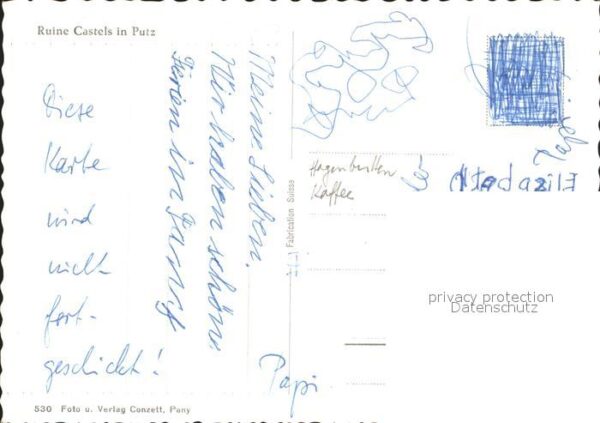 Ruine Castels in Putz
Diese
Karte
wird
nicht
fort-
geschickt!
Meine Lieben.
Wir haben schöne
Ferien in
Papi
Hagenbutten
Kaffee
Elisabeth
Fabrication Suisse
privacy protection
Datenschutz
530 Foto u. Verlag Conzett, Pany